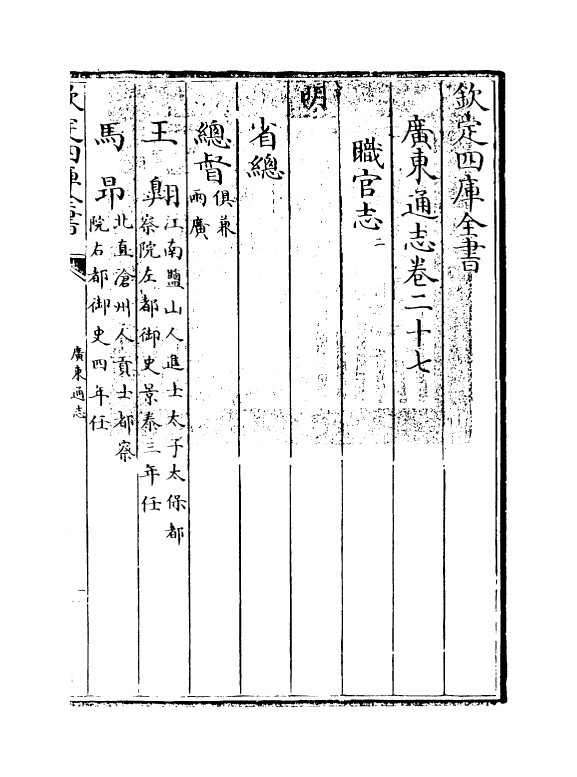 欽定四庫全書
廣東通志卷二十七
職官志二
明
省總
總督俱兼
兩廣
王翱江南鹽山人進士太子太保都
察院左都御史景泰三年任
馬昂北直滄州人貢士都察
院右都御史四年任
欽定四庫全書
廣東通志